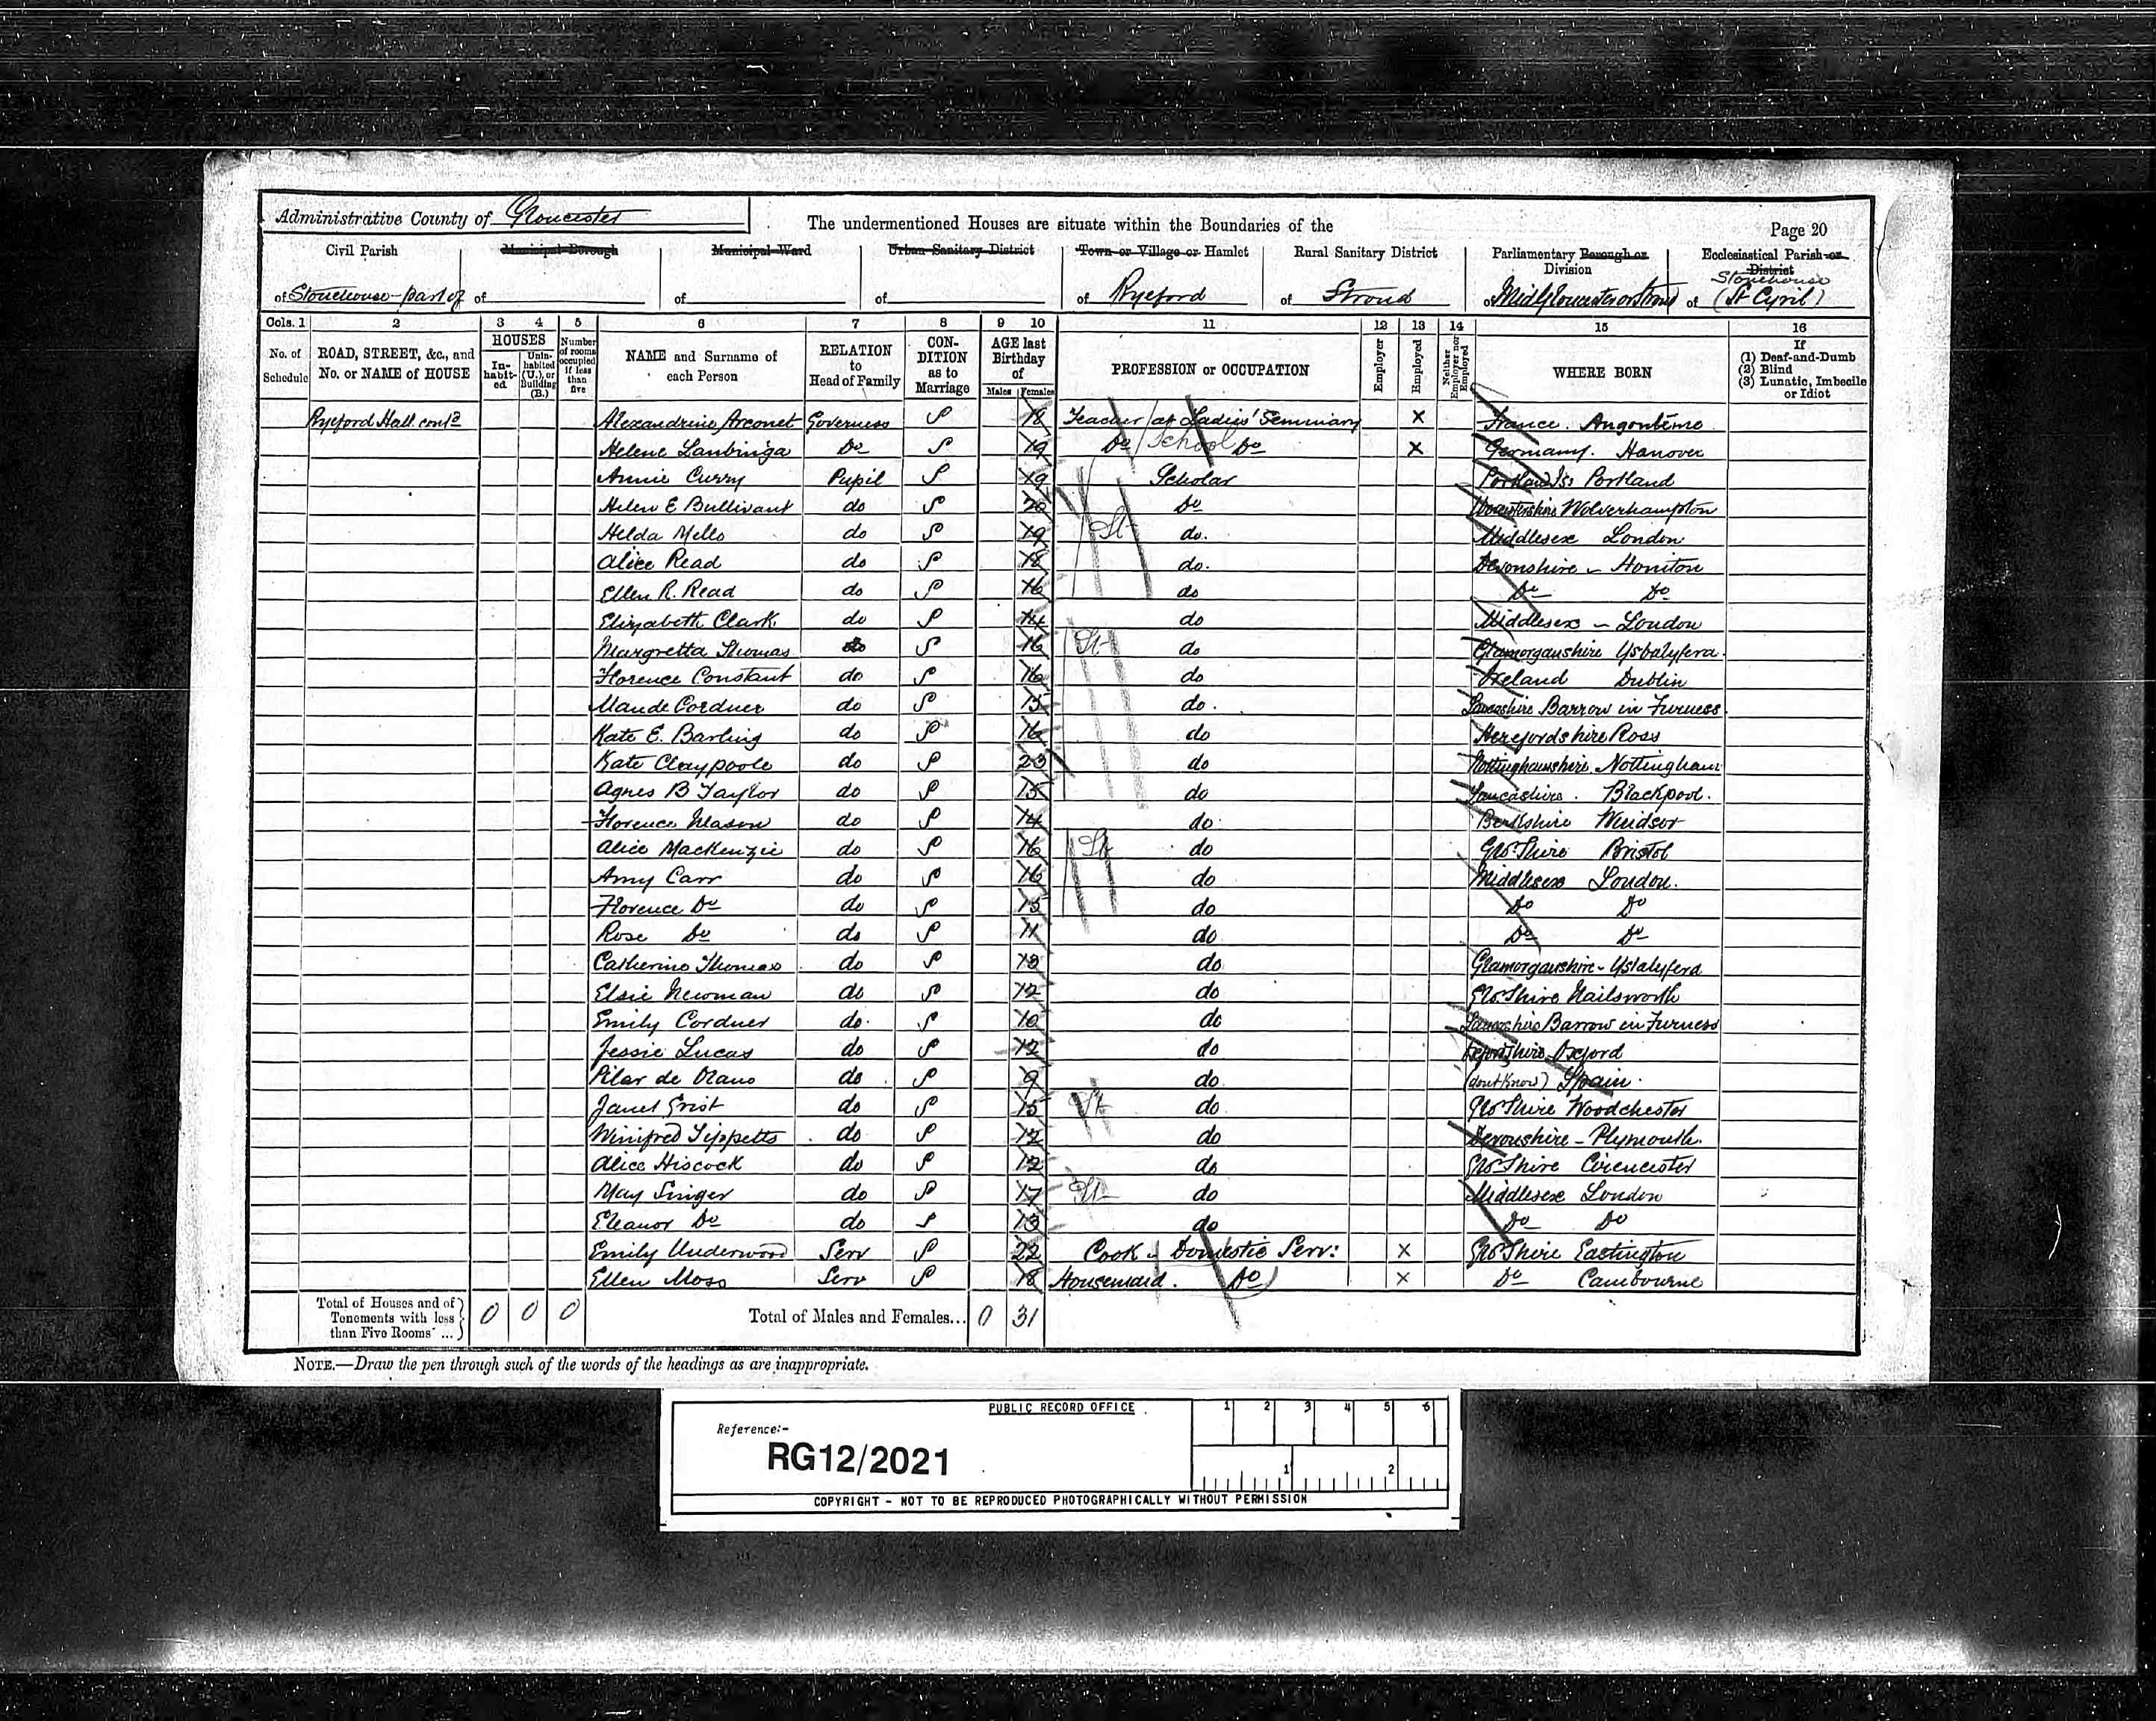 Administrative County of Gloucester
The undermentioned Houses are situate within the Boundaries of the
Page 20
Civil Parish
Municipal Borough
Municipal Ward
Urban Sanitary District
Town or Village or Hamlet
Rural Sanitary District
Parliamentary Borough or Division
Ecclesiastical Parish or District
of Stonehouse-part of of of of of Ryeford of Stroud of Mid Gloucester or Stroud of Stonehouse (St Cyril)
Cols. 1 2 3 4 5 6 7 8 9 10 11 12 13 14 15 16
No. of Schedule
ROAD, STREET, &c., and No. or NAME of HOUSE
HOUSES
In-habit-ed
Unin-habited (U.), or Building (B.)
Number of rooms occupied if less than five
NAME and Surname of each Person
RELATION to Head of Family
CON-DITION as to Marriage
AGE last Birthday of
Males Females
PROFESSION or OCCUPATION
Employer
Employed
Neither Employer nor Employed
WHERE BORN
If
(1) Deaf-and-Dumb
(2) Blind
(3) Lunatic, Imbecile or Idiot
Ryeford Hall contd Alexandrine Arconet Governess S 18 Teacher at Ladies' Seminary X France. Angoulême
Helene Laubinga Do S 19 Do School Do X Germany. Hanover
Annie Curry Pupil S 19 Scholar Portland Is: Portland
Helen E Bullivant do S 20 Do Worcestershire Wolverhampton
Hilda Mello do S 19 St do. Middlesex London
Alice Read do S 18 do. Devonshire - Honiton
Ellen R. Read do S 16 do Do Do
Elizabeth Clark do S 14 do Middlesex - London
Margretta Thomas do S 16 St do Glamorganshire Ystalyfera
Florence Constant do S 16 do Ireland Dublin
Maude Corduer do S 15 do. Lancashire Barrow in Furness
Kate E. Barling do S 16 do Herefordshire Ross
Kate Claypoole do S 23 do Nottinghamshire. Nottingham
Agnes B Taylor do S 15 do Lancashire. Blackpool.
Florence Mason do S 14 do Berkshire Windsor
Alice Mackenzie do S 16 St do Glo:Shire Bristol
Amy Carr do S 16 do Middlesex London.
Florence Do do S 15 do Do Do
Rose Do do S 11 do Do Do
Catherine Thomas do S 13 do Glamorganshire - Ystalyfera
Elsie Newman do S 12 do Glo:Shire Nailsworth
Emily Corduer do. S 10 do Lancashire Barrow in Furness
Jessie Lucas do S 12 do Oxfordshire Oxford
Pilar de Olano do S 9 do (dont know) Spain
Janet Grist do S 15 St do Glo:Shire Woodchester
Winifred Tippetts do S 12 do Devonshire - Plymouth.
Alice Hiscock do S 12 do Glo:Shire Cirencester
May Singer do S 17 St do Middlesex London
Eleanor Do do S 13 do Do Do
Emily Underwood Serv S 22 Cook - Domestic Serv: X Glo:Shire Eastington
Ellen Moss Serv S 18 Housemaid. Do X Do Cambourne
Total of Houses and of Tenements with less than Five Rooms ... 0 0 0 Total of Males and Females... 0 31
NOTE.—Draw the pen through such of the words of the headings as are inappropriate.
PUBLIC RECORD OFFICE
1 2 3 4 5 6
Reference:-
RG12/2021
1 2
COPYRIGHT - NOT TO BE REPRODUCED PHOTOGRAPHICALLY WITHOUT PERMISSION